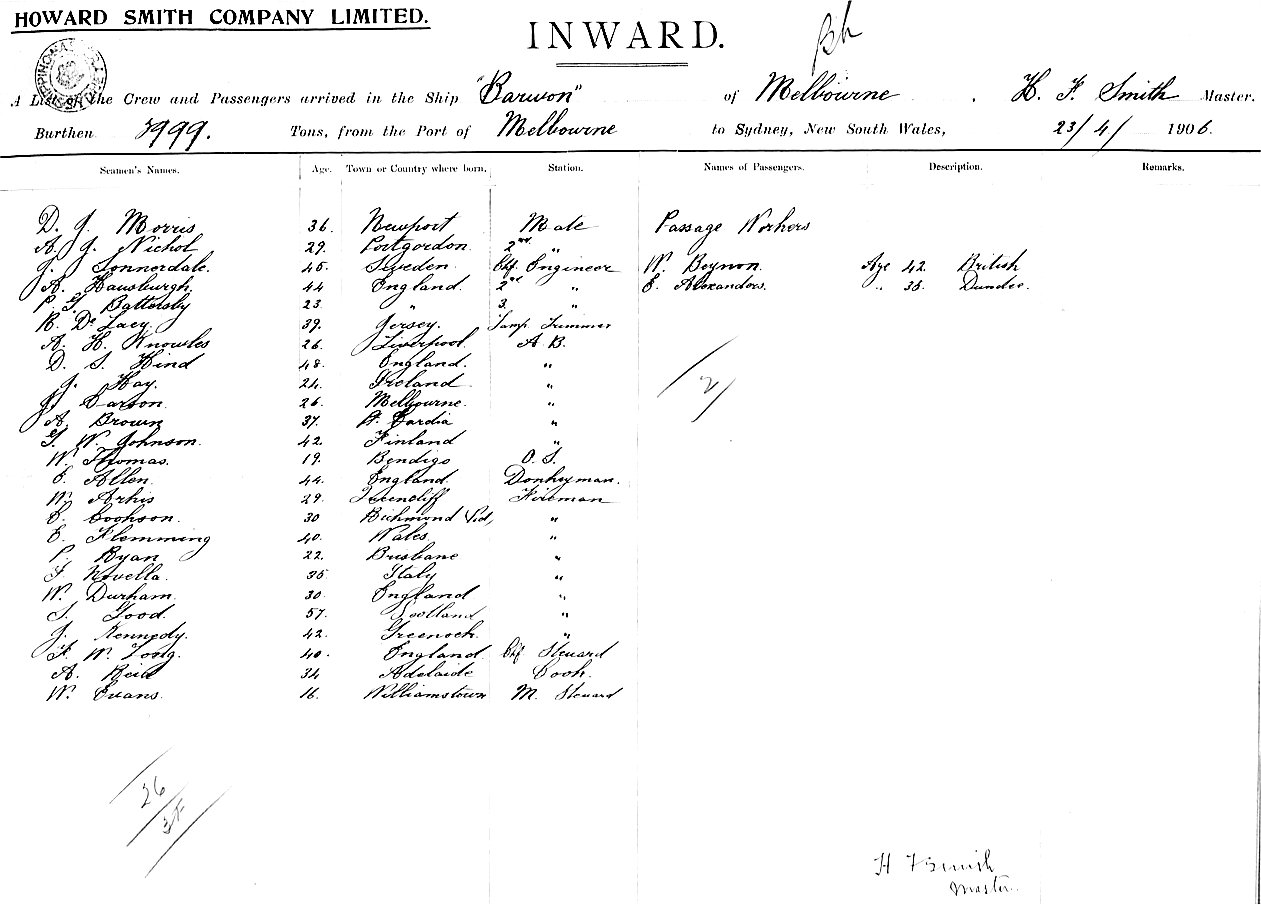 HOWARD SMITH COMPANY LIMITED.
INWARD.
A List of the Crew and Passengers arrived in the Ship "Barwon" of Melbourne . H. F. Smith Master.
Burthen 3999. Tons, from the Port of Melbourne to Sydney, New South Wales, 23/4/ 1906.
Seamen's Names. Age. Town or Country where born. Station. Names of Passengers. Description. Remarks.
D. J. Morris 36. Newport Mate Passage Workers
A. J. Nichol 29. Portgordon. 2nd "
J. Sonnerdale. 45. Sweden. Chf. Engineer W. Beynon. Age 42. British
A. Hausburgh. 44 England. 2nd " E. Alexanders. " 35. Dundee.
P. G. Battersby 23 " 3. "
R. De Lacy. 39. Jersey. Lamp Trimmer
A. H. Knowles 26. Liverpool. A B.
D. S. Hind 48. England. "
J. Hay. 24. Ireland "
J. Carson. 26. Melbourne. "
A. Brown 37. "
G. W. Johnson. 42. Finland "
W. Thomas. 19. Bendigo O. S.
E. Allen. 44. England Donkeyman.
W. Arkis 29. Queencliff Fireman
E. Cookson. 30 Richmond Vic, "
E. Flemming 40. Wales "
P. Ryan 22. Brisbane "
F. Novella. 35 Italy "
W. Durham. 30. England "
S. Good. 57. Scotland "
J. Kennedy. 42. Greenock. "
F. W. Tong. 40. England. Chf Steward
A. Reid 34 Adelaide Cook.
W. Evans. 16. Williamstown M. Steward
2
26
H F Smith
Master.